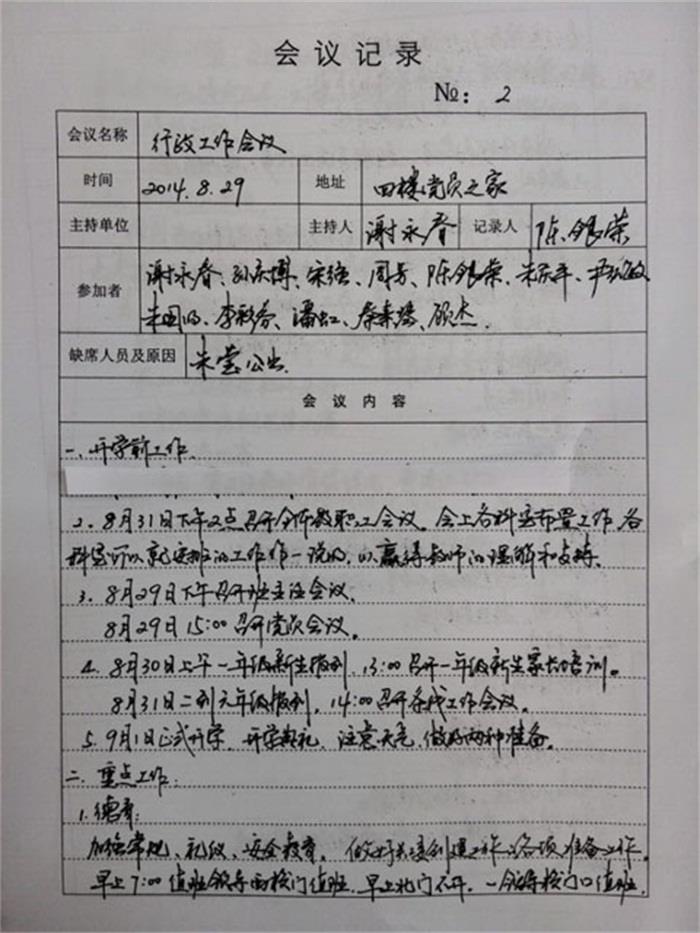 会议记录
№: 2
会议名称 行政工作会议
时间 2014.8.29 地址 四楼党员之家
主持单位 主持人 谢永春 记录人 陈银荣
参加者 谢永春、孙庆博、宋强、周芳、陈银荣、朱永平、
李彩芬、潘虹、秦素琴、顾杰.
缺席人员及原因 朱莹公出.
会议内容
一、开学前工作.
2、8月31日下午2点召开全体教职工会议。会上各科室布置工作,各
科室可以就安排的工作作一说明,以赢得教师的理解和支持.
3、8月29日下午召开班主任会议.
8月29日15:00召开党员会议。
4、8月30日上午一年级新生报到,13:00召开一年级新生家长培训。
8月31日二到六年级报到,14:00召开条线工作会议。
5、9月1日正式开学,开学典礼,注意天气,做好两种准备。
二、重点工作:
1、德育:
加强常规、礼仪、安全教育。做好创建工作各项准备工作.
早上7:00值班领导西校门值班,早上北门不开,一领导校门口值班.